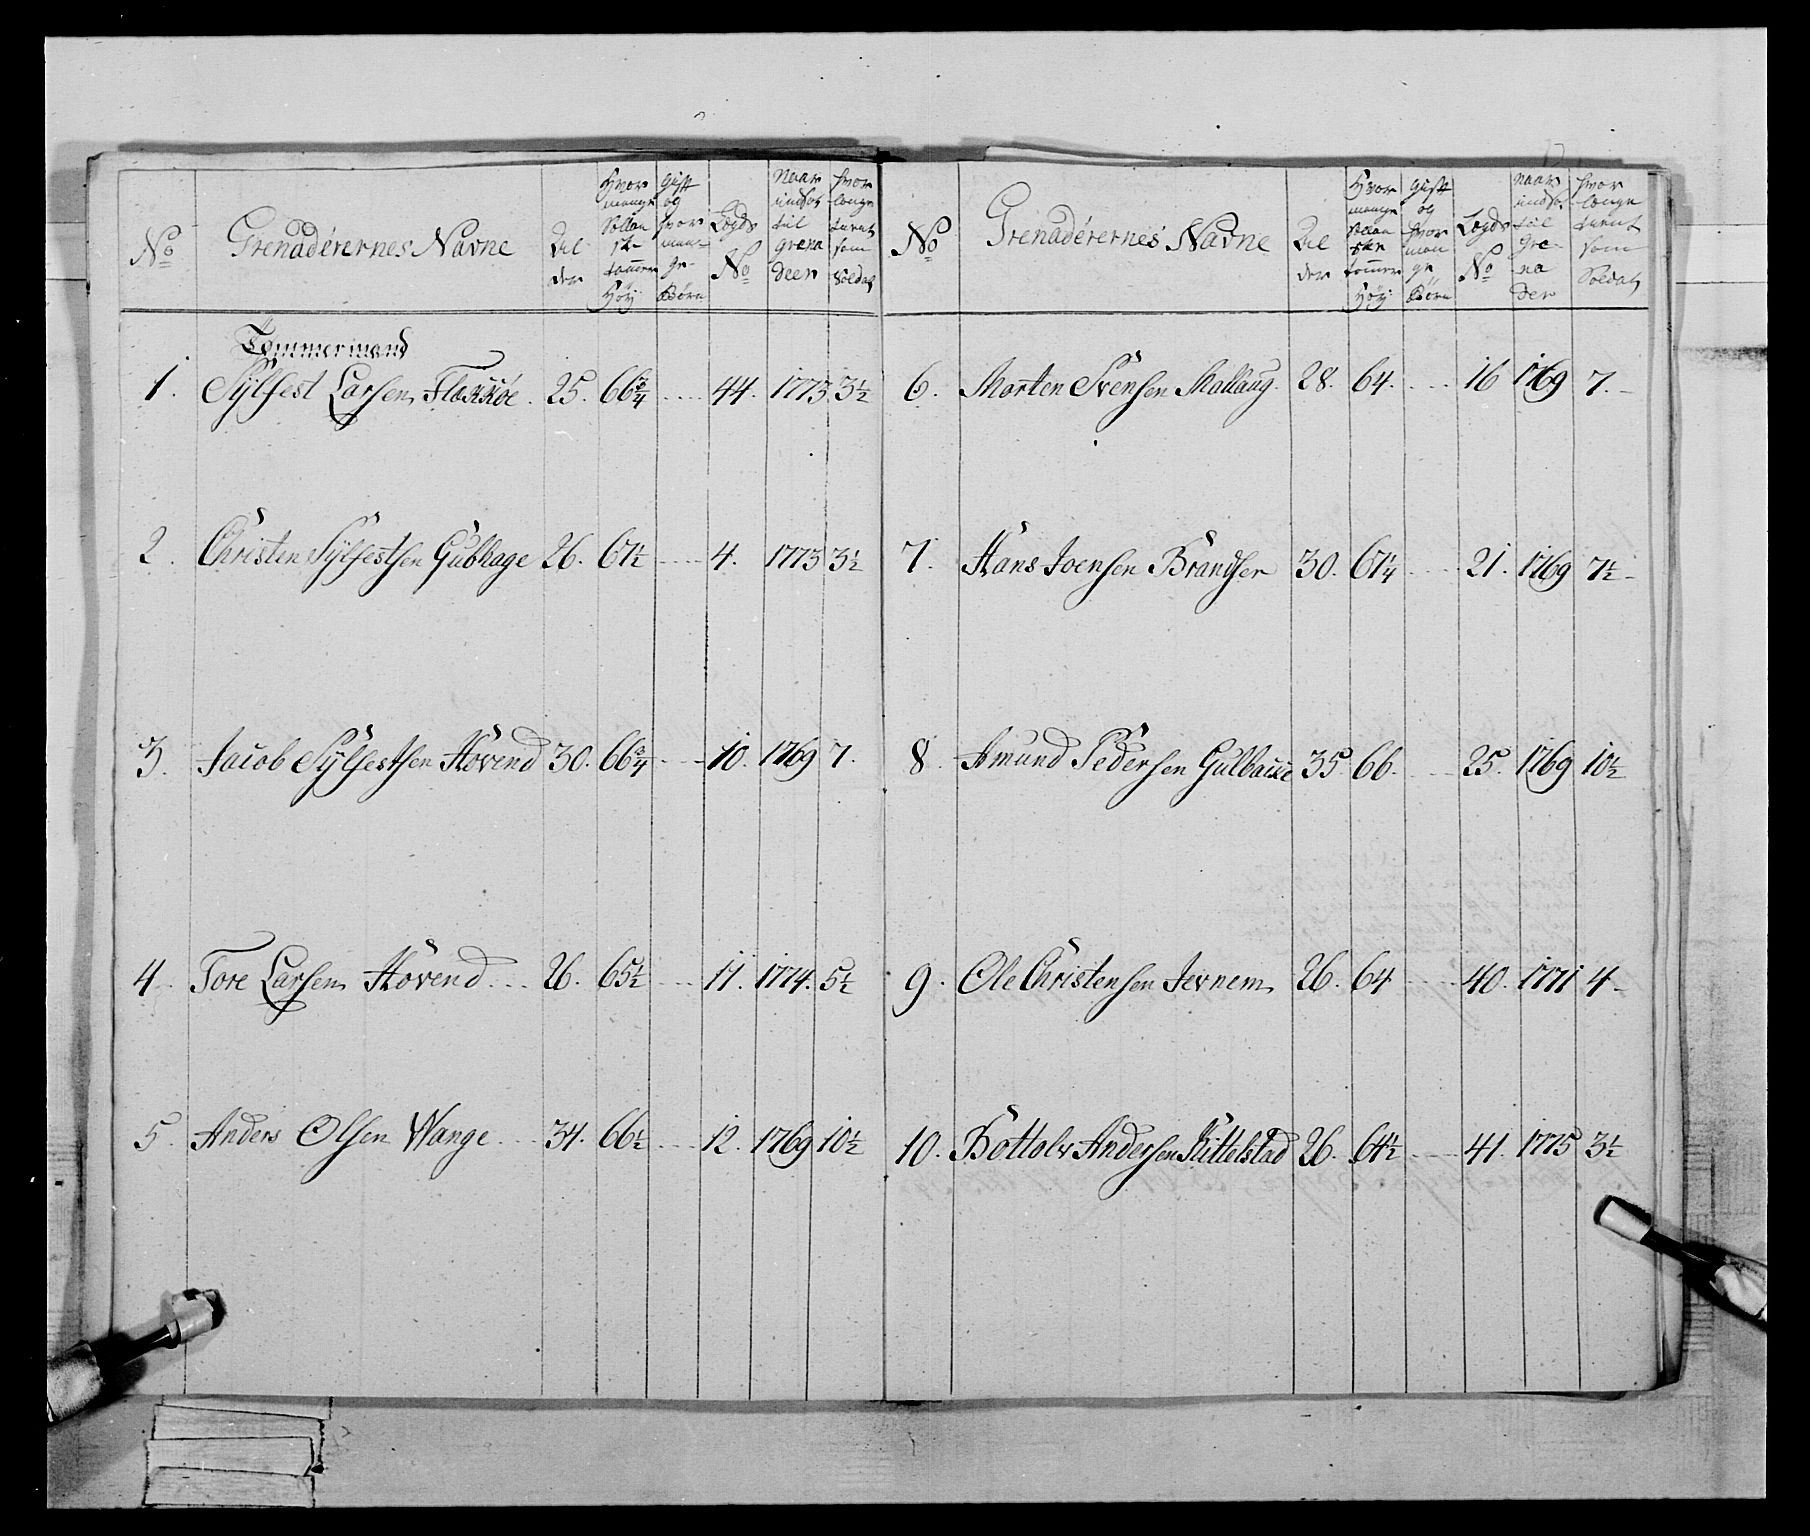 No
Grenadérernes Navne
Al
der
Hvor
mange
Sollan
ske
tommer
Høy
Gift
og
hvor
man
ge
Børn
Lægds
No
Naar
indsat
til
Grena
deer
hvor
længe
tient
som
Soldat
Tømmermand
1. Sÿlfest Larsen Fladøe. 25. 66 3/4 .... 44. 1773 3 1/2
2. Christen Sÿlfestsen Gubhage 26. 67 1/2 .... 4. 1773 3 1/2
3. Jacob Sÿlfestsen Hovend 30. 66 3/4 .... 10. 1769 7.
4. Tore Larsen Hovend... 26. 65 1/2 .... 11. 1774. 5 1/2
5. Anders Olsen Wange... 34. 66 1/2 .... 12. 1769 10 1/2
No
Grenadérernes Navne
Al
der
Hvor
mange
Sollan
ske
tommer
Høy
Gift
og
hvor
man
ge
Børn
Lægds
No
Naar
indsa
til
Gre-
na
der
hvor
længe
tient
som
Soldat
6. Morten Svensen Mallaug. 28. 64. .... 16 1769 7.-
7. Hans Joensen Brandsen 30. 67 1/4 .... 21. 1769 7 1/2 -
8. Amund Pedersen Gulbache 35. 66. .... 25. 1769 10 1/2
9. Ole Christensen Jevnem 26. 64 .... 40. 1771 4-
10. Bottolv Andersen Kittelstad 26. 64 1/2 .... 41. 1775 3 1/2